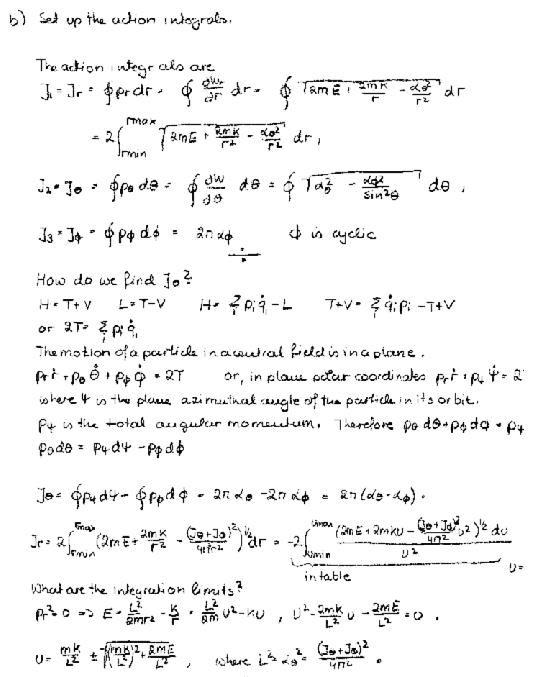 b) Set up the action integrals.
The action integrals are
J₁ = Jr = ∮ pr dr = ∮ ∂Wr/∂r dr = ∮ √(2mE + 2mk/r - αθ²/r²) dr
= 2∫_{rmin}^{rmax} √(2mE + 2mk/r - αθ²/r²) dr,
J₂ = Jθ = ∮ pθ dθ = ∮ ∂W/∂θ dθ = ∮ √(αθ² - αφ²/sin²θ) dθ,
J₃ = Jφ = ∮ pφ dφ = 2π αφ φ is cyclic
How do we find Jθ?
H = T+V L = T-V H = Σ pi q̇i - L T+V = Σ q̇i pi - T+V
or 2T = Σ pi q̇i
The motion of a particle in a central field is in a plane.
pr ṙ + pθ θ̇ + pφ φ̇ = 2T or, in plane polar coordinates pr ṙ + pψ ψ̇ = 2
where ψ is the plane azimuthal angle of the particle in its orbit.
pψ is the total angular momentum. Therefore pθ dθ + pφ dφ = pψ
pθ dθ = pψ dψ - pφ dφ
Jθ = ∮ pψ dψ - ∮ pφ dφ = 2π αθ - 2π αφ = 2π(αθ - αφ).
Jr = 2∫_{rmin}^{rmax} (2mE + 2mk/r - (Jθ+Jφ)²/4π²r²)^½ dr = -2∫_{umin}^{umax} (2mE + 2mku - (Jθ+Jφ)²/4π² u²)^½ du / u²
in table u=
What are the integration limits?
pr = 0 => E = L²/2mr² - k/r = L²/2m u² - ku, u² - 2mk/L² u - 2mE/L² = 0.
u = mk/L² ± √((mk/L²)² + 2mE/L²), where L² = αθ² = (Jθ+Jφ)²/4π².